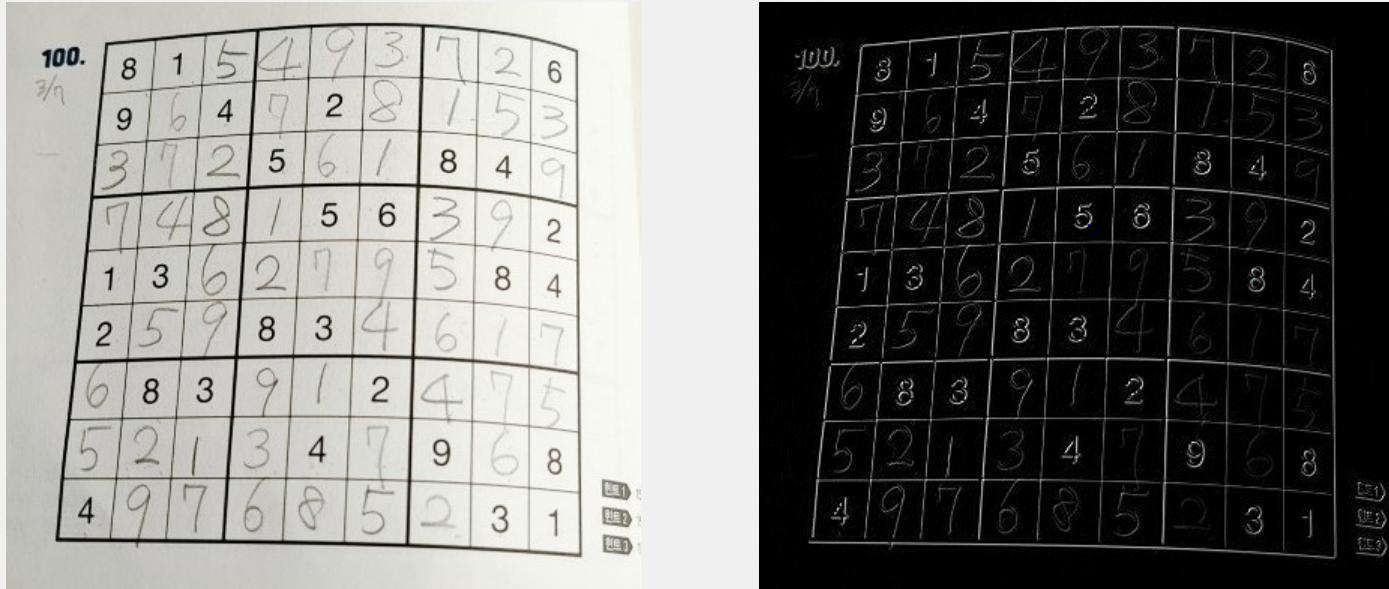 100.
3/7
8 1 5 4 9 3 7 2 6
9 6 4 7 2 8 1 5 3
3 7 2 5 6 1 8 4 9
7 4 8 1 5 6 3 9 2
1 3 6 2 7 9 5 8 4
2 5 9 8 3 4 6 1 7
6 8 3 9 1 2 4 7 5
5 2 1 3 4 7 9 6 8
4 9 7 6 8 5 2 3 1
힌트1
힌트2
힌트3
100.
3/7
8 1 5 4 9 3 7 2 6
9 6 4 7 2 8 1 5 3
3 7 2 5 6 1 8 4 9
7 4 8 1 5 6 3 9 2
1 3 6 2 7 9 5 8 4
2 5 9 8 3 4 6 1 7
6 8 3 9 1 2 4 7 5
5 2 1 3 4 7 9 6 8
4 9 7 6 8 5 2 3 1
힌트1
힌트2
힌트3